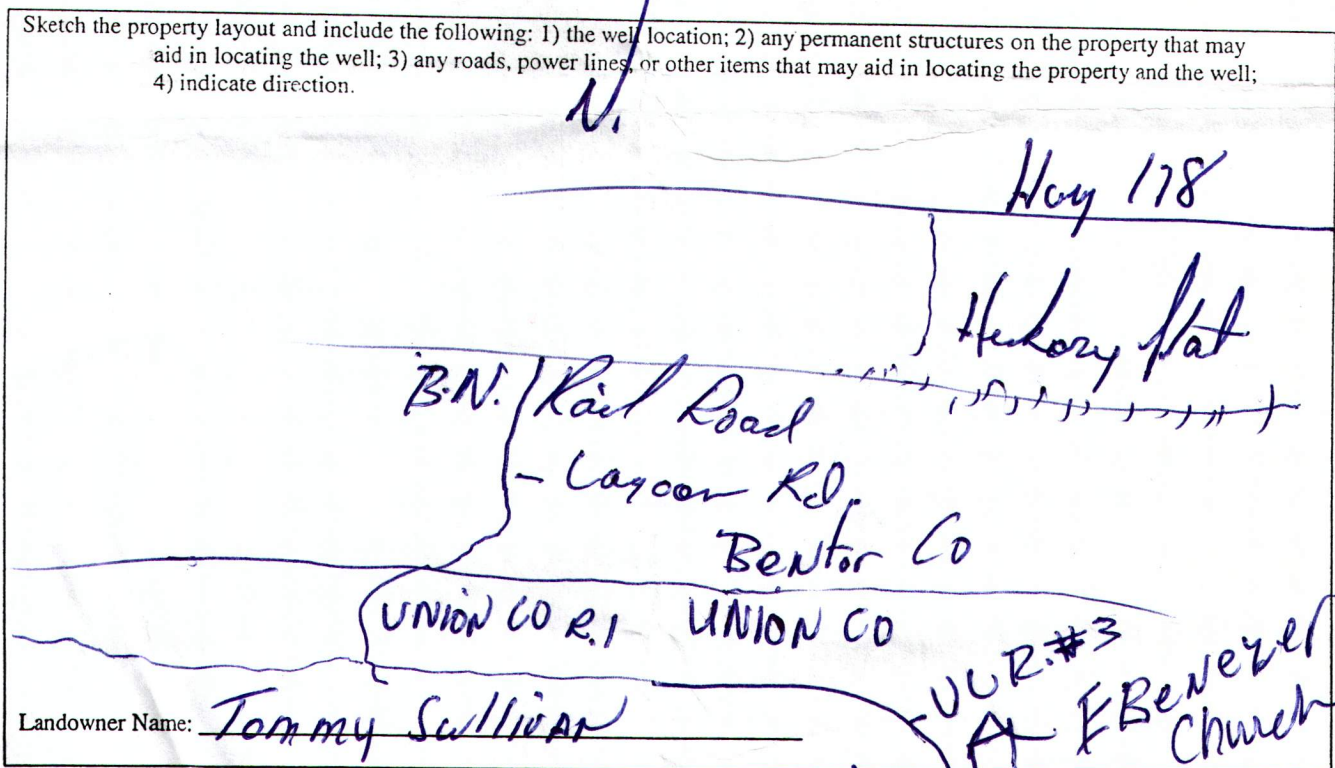 Sketch the property layout and include the following: 1) the well location; 2) any permanent structures on the property that may
aid in locating the well; 3) any roads, power lines, or other items that may aid in locating the property and the well;
4) indicate direction.
N.
Hwy 178
Hickory flat
B.N. Rail Road
Lagoon Rd.
Benton Co
UNION CO R.1 UNION CO
UCR.#3
EBenezer
Church
Landowner Name: Tommy Sullivan